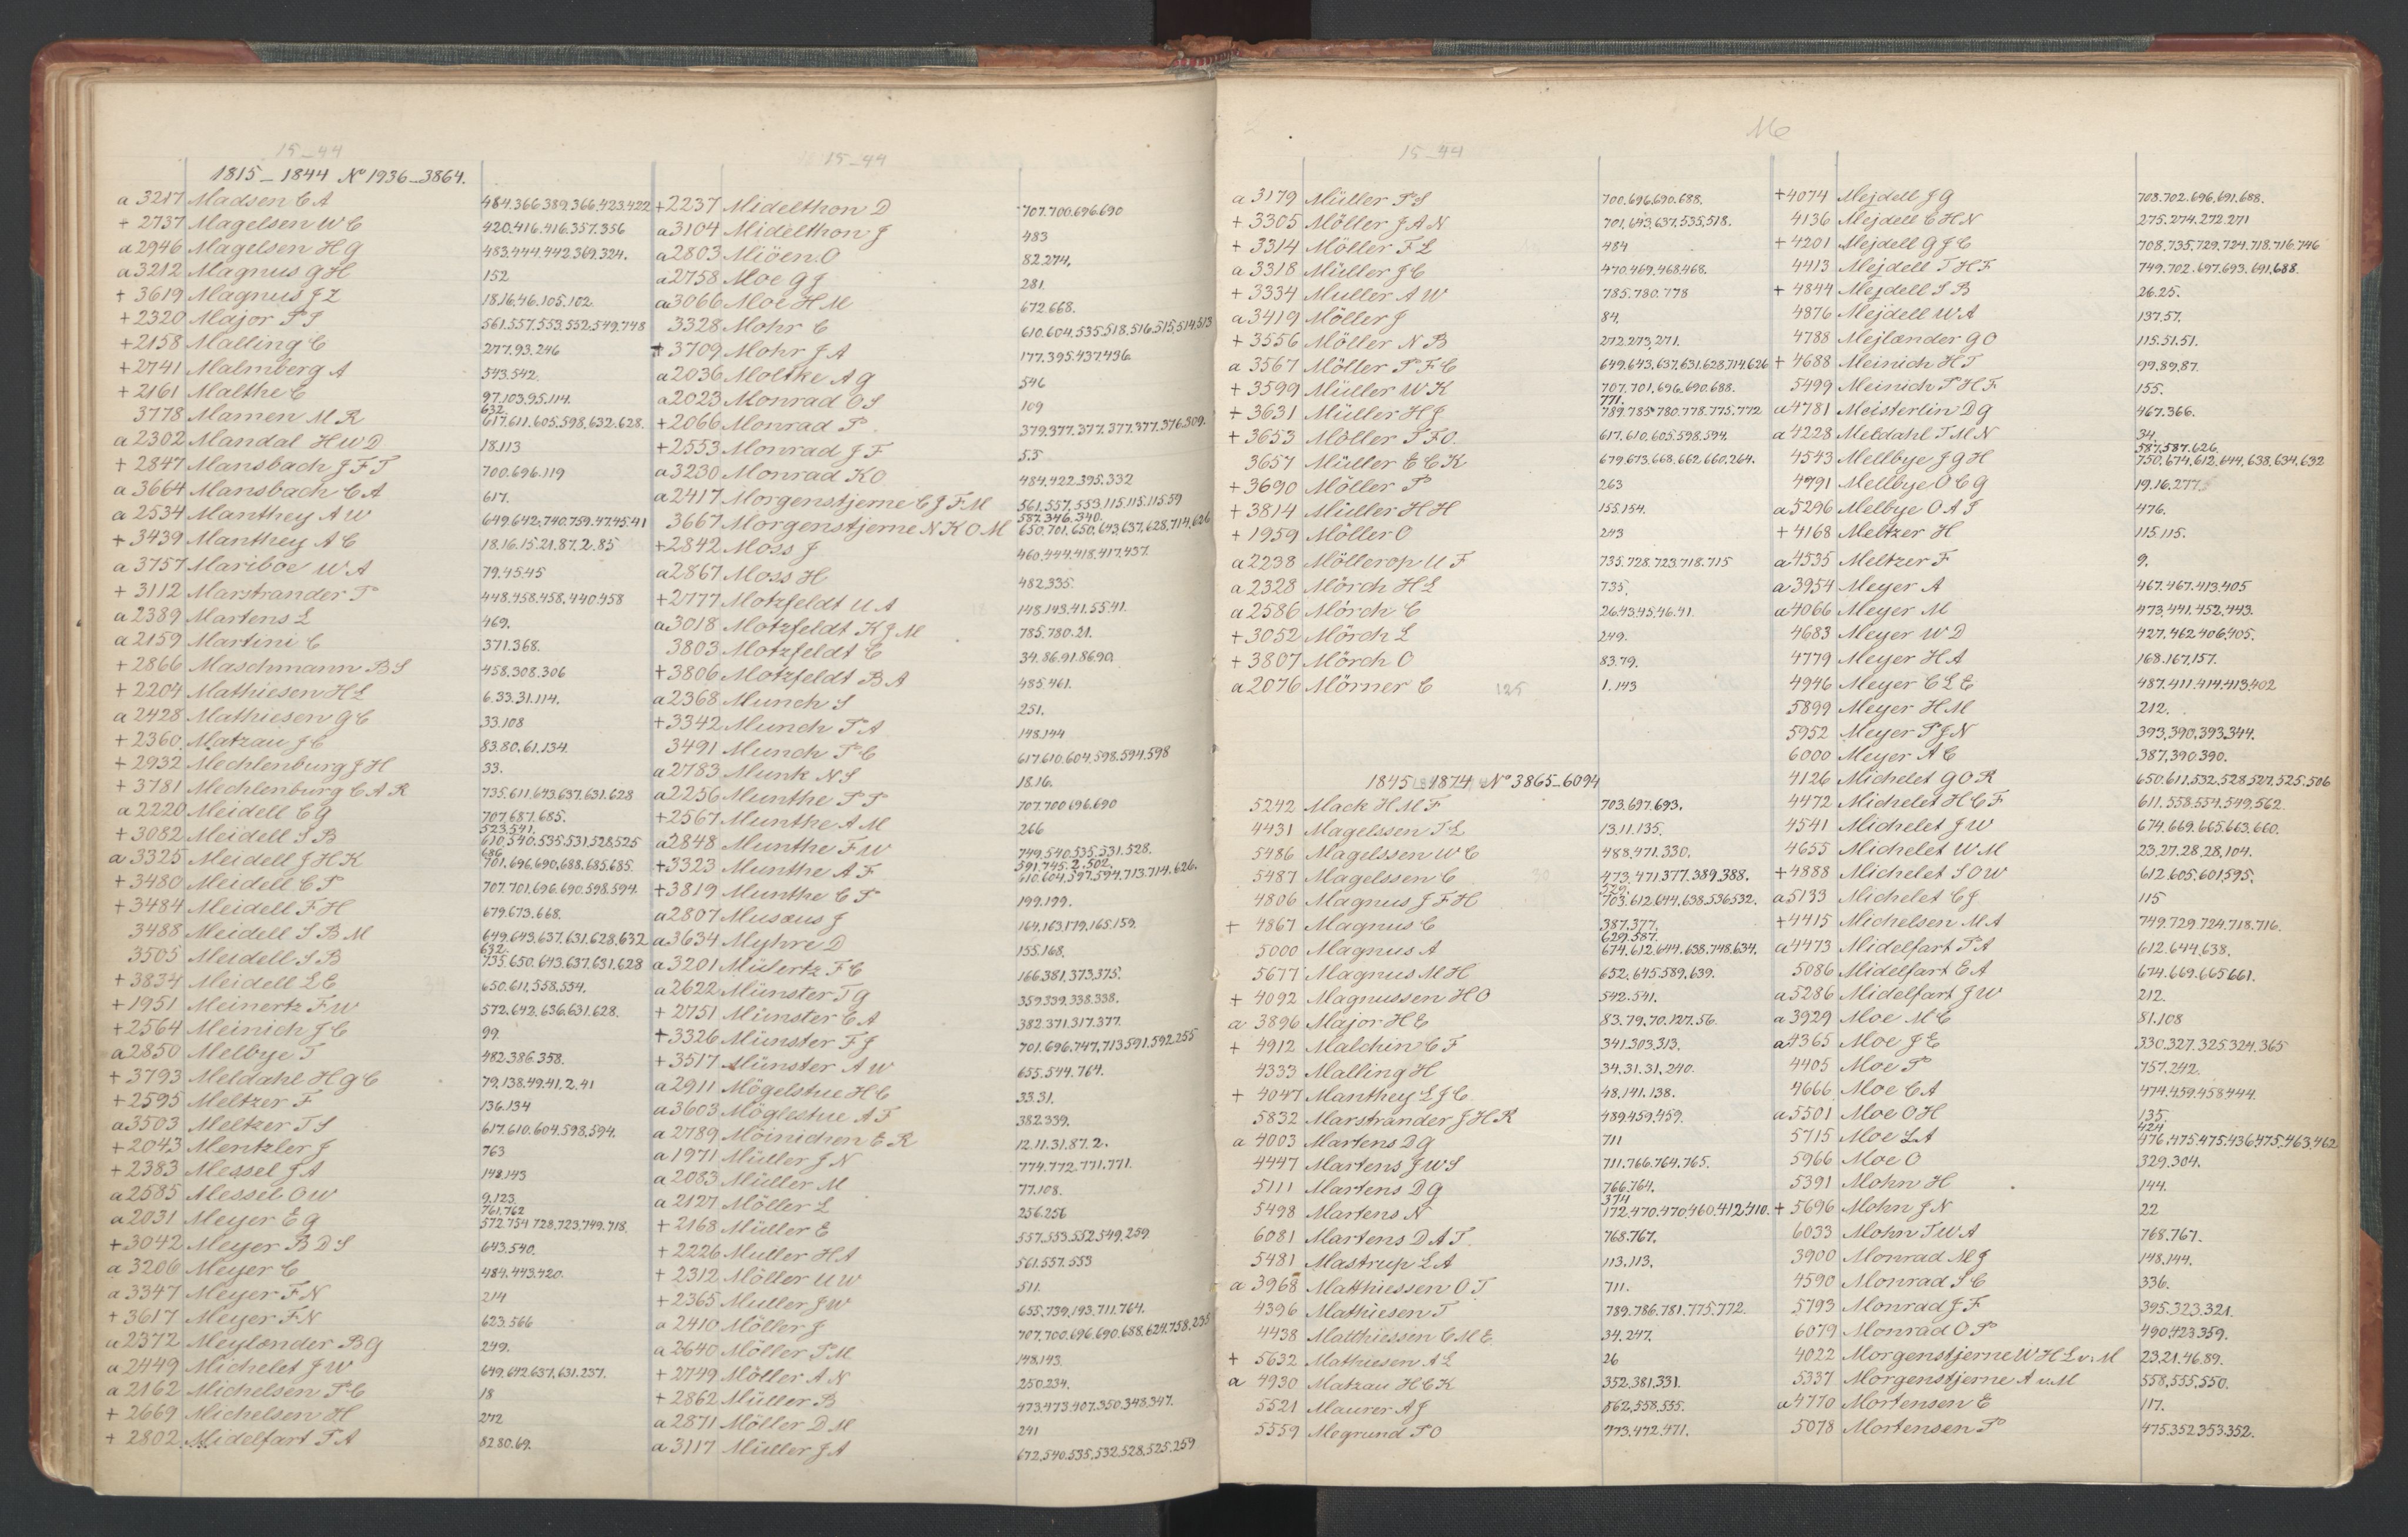 15-44
1815-1844 No 1936-3864.
a 3217 Madsen C A 484.366.389.366.423.422
+ 2737 Magelsen W C 420.416.416.357.356
a 2946 Magelsen H G 483.444.442.369.324.
a 3212 Magnus G H 152
+ 3619 Magnus J Z 18.16.46.105.102.
+ 2320 Major P S 561.557.553.552.549.748
+ 2158 Malling C 277.93.246
+ 2741 Malmberg A 543.542.
+ 2161 Malthe C 97.103.95.114.
3778 Mamen M R 632. 617.611.605.598.632.628.
a 2302 Mandal H W D 18.113
+ 2847 Mansbach J F T 700.696.119
a 3664 Mansbach C A 617.
a 2534 Manthey A W 649.642.740.759.47.45.41
+ 3439 Manthey A C 18.16.15.21.87.2.85
a 3757 Mariboe W A 79.45.45
+ 3112 Marstrander P 448.458.458.440.458
a 2389 Martens L 469.
a 2159 Martini C 371.368.
+ 2866 Maschmann B S 458.308.306
+ 2204 Mathiesen H L 6.33.31.114.
a 2428 Mathiesen G C 33.108
+ 2360 Matzau J C 83.80.61.134.
+ 2932 Mechlenburg J H 33.
+ 3781 Mechlenburg C A R 735.611.643.637.631.628
a 2220 Meidell C G 707.687.685.
+ 3082 Meidell S B 523.541. 610.540.535.531.528.525
a 3325 Meidell J H K 686 701.696.690.688.685.685.
+ 3480 Meidell C P 707.701.696.690.598.594.
+ 3484 Meidell F H 679.673.668.
3488 Meidell S B M 649.643.637.631.628.632
3505 Meidell S B 632. 735.650.643.637.631.628
+ 3834 Meidell L E 650.611.558.554.
+ 1951 Meinertz F W 572.642.636.631.628.
+ 2564 Meinich J C 99.
a 2850 Melbye T 482.386.358.
+ 3793 Meldahl H G C 79.138.49.41.2.41
+ 2595 Meltzer F 136.134
a 3503 Meltzer T S 617.610.604.598.594.
+ 2043 Mentzler J 763
+ 2383 Messel J A 148.143
a 2585 Messel O W 9.123.
a 2031 Meyer E G 761.762 572.754.728.723.749.718.
+ 3042 Meyer B D S 643.540.
a 3206 Meyer C 484.443.420.
a 3347 Meyer F N 214
+ 3617 Meyer F N 623.566
a 2372 Meylænder B G 249.
a 2449 Michelet J W 649.642.637.631.237.
a 2162 Michelsen P C 18
+ 2669 Michelsen H 272
+ 2802 Midelfart T A 82.80.69.
15-44
+ 2237 Midelthon D 707.700.696.690
a 3104 Midelthon J 483
a 2803 Miöen O 82.274.
a 2758 Moe G J 281.
a 3066 Moe H M 672.668.
3328 Mohr C 610.604.535.518.516.515.514.513
+ 3709 Mohr J A 177.395.437.436
a 2036 Moltke A G 546
a 2023 Monrad O S 109
+ 2066 Monrad P 379.377.377.377.377.376.309.
+ 2553 Monrad J F 55
a 3230 Monrad K O 484.422.395.332
a 2417 Morgenstjerne C J F M 561.557.553.115.115.115.59
3667 Morgenstjerne N K O M 587.346.340. 650.701.650.643.637.628.714.626
+ 2842 Moss J 460.444.418.417.437.
a 2867 Moss H 482.335.
+ 2777 Motzfeldt U A 148.143.41.55.41.
a 3018 Motzfeldt K J M 785.780.21.
3803 Motzfeldt C 34.86.91.86.90.
+ 3806 Motzfeldt B A 485.461.
a 2368 Munch S 251.
+ 3342 Munch P A 148.144
3491 Munch P C 617.610.604.598.594.598
a 2783 Munk N S 18.16.
a 2256 Munthe P P 707.700.696.690
+ 2567 Munthe A M 266
a 2848 Munthe F W 749.540.535.531.528.
+ 3323 Munthe A F 591.745.2.502. 610.604.597.594.713.714.626.
+ 3819 Munthe C P 199.199.
a 2807 Musæus J 164.163.179.165.159.
a 3634 Myhre D 155.168.
a 3201 Mülertz F C 166.381.373.375.
a 2622 Münster T G 359.339.338.338.
+ 2751 Münster C A 382.371.317.377.
+ 3326 Münster F J 701.696.747.713.591.592.255
+ 3517 Münster A W 655.544.764.
a 2911 Mögelstue H C 33.31.
a 3603 Möglestue A F 382.339.
a 2789 Möinichen E R 12.11.31.87.2.
a 1971 Müller J N 774.772.771.771.
a 2083 Müller M 77.108.
a 2127 Möller L 256.256
+ 2168 Müller E 557.553.552.549.259
+ 2226 Muller H A 561.557.553
+ 2312 Möller U W 511.
+ 2365 Muller J W 655.739.193.711.764.
a 2410 Möller J 707.700.696.690.688.624.758.235
a 2640 Möller P M 148.143.
+ 2749 Möller A N 250.234.
+ 2862 Müller B 473.473.407.350.348.347.
a 2871 Möller D M 241
a 3117 Müller J A 672.540.535.532.528.525.259
M
15-44
a 3179 Müller P S 700.696.690.688.
+ 3305 Möller J A N 701.643.637.535.518.
+ 3314 Möller F L 484
a 3318 Müller J C 470.469.468.468.
+ 3334 Muller A W 785.780.778
a 3419 Möller J 84.
+ 3556 Möller N B 272.273.271.
a 3567 Möller P F C 649.643.637.631.628.714.626
+ 3599 Müller W K 707.701.696.690.688.
+ 3631 Müller H J 771. 789.785.780.778.775.772
+ 3653 Möller P F O 617.610.605.598.594.
3657 Müller E C K 679.673.668.662.660.264.
+ 3690 Möller P 263
+ 3814 Müller H H 155.154.
+ 1959 Möller O 243
a 2238 Möllerop U F 735.728.723.718.715
a 2328 Mörch H L 735.
a 2586 Mörch C 26.43.45.46.41.
+ 3052 Mörch L 249.
+ 3807 Mörch O 83.79.
a 2076 Mörner C 125 1.143
1845-1874 No 3865-6094
5242 Mack H M F 703.697.693.
4431 Magelssen T L 13.11.135.
5486 Magelssen W C 488.471.330.
5487 Magelssen C 473.471.377.389.388.
4806 Magnus J F H 529. 703.612.644.638.536.532.
+ 4867 Magnus C 387.377.
5000 Magnus A 629.587. 674.612.644.638.748.634.
5677 Magnus M H 652.645.589.639.
+ 4092 Magnussen H O 542.541.
a 3896 Major H E 83.79.70.127.56.
+ 4912 Malchin C F 341.303.313.
4333 Malling H 34.31.31.240.
+ 4047 Manthey L J C 48.141.138.
5832 Marstrander J H R 489.459.459.
a 4003 Martens D G 711
4447 Martens J W S 711.766.764.765.
5111 Martens D G 766.764.
5498 Martens N 374 172.470.470.460.412.410.
6081 Martens D A T 768.767.
5481 Mastrup L A 113.113.
a 3968 Matthiessen O T 711.
4396 Mathiesen T 789.786.781.775.772.
4438 Matthiessen C M E 34.247.
+ 5632 Mathiesen A L 26
a 4930 Matzau H C K 352.381.331.
5521 Maurer A J 562.558.555.
5559 Megrund P O 473.472.471.
+ 4074 Mejdell J G 708.702.696.691.688.
4136 Mejdell C H N 275.274.272.271
+ 4201 Mejdell G J C 708.735.729.724.718.716.746
4413 Mejdell T H F 749.702.697.693.691.688.
+ 4844 Mejdell S B 26.25.
4876 Mejdell W A 137.57.
4788 Mejlænder G O 115.51.51.
+ 4688 Meinich H T 99.89.87.
5499 Meinich P H F 155.
a 4781 Meisterlin D G 467.366.
a 4228 Meldahl T M N 34.
4543 Mellbye J G H 587.587.626. 750.674.612.644.638.634.632
4791 Mellbye O C G 19.16.277.
a 5296 Melbye O A S 476.
+ 4168 Meltzer H 115.115.
a 4535 Meltzer F 9.
a 3954 Meyer A 467.467.413.405
a 4066 Meyer M 473.441.452.443.
4683 Meyer W D 427.462.406.405.
4779 Meyer H A 168.167.157.
4946 Meyer C L E 487.411.414.413.402
5899 Meyer H M 212.
5952 Meyer P J N 393.390.393.344.
6000 Meyer A C 387.390.390.
4126 Michelet G O R 650.611.532.528.527.525.506
4472 Michelet H C F 611.558.554.549.562.
4541 Michelet J W 674.669.665.663.660.
4655 Michelet W M 23.27.28.28.104.
+ 4888 Michelet S O W 612.605.601.595.
a 5133 Michelet C J 115
+ 4415 Michelsen M A 749.729.724.718.716.
a 4473 Midelfart P A 612.644.638.
5086 Midelfart E A 674.669.665.661.
a 5286 Midelfart J W 212.
a 3929 Moe M C 81.108
a 4365 Moe J E 330.327.325.324.365
4405 Moe P 757.242.
4666 Moe C A 474.459.458.444.
a 5501 Moe O H 135.
5715 Moe L A 424 476.475.475.436.475.463.462
5966 Moe O 329.304.
5391 Mohn H 144.
+ 5696 Mohn J N 22
6033 Mohn T W A 768.767.
3900 Monrad M J 148.144.
4590 Monrad S C 336.
5793 Monrad J F 395.323.321.
6079 Monrad O P 490.423.359.
4022 Morgenstjerne W H L v. M 23.21.46.89.
5337 Morgenstjerne A v. M 558.555.550.
a 4770 Mortensen E 117.
5078 Mortensen P 475.352.353.352.